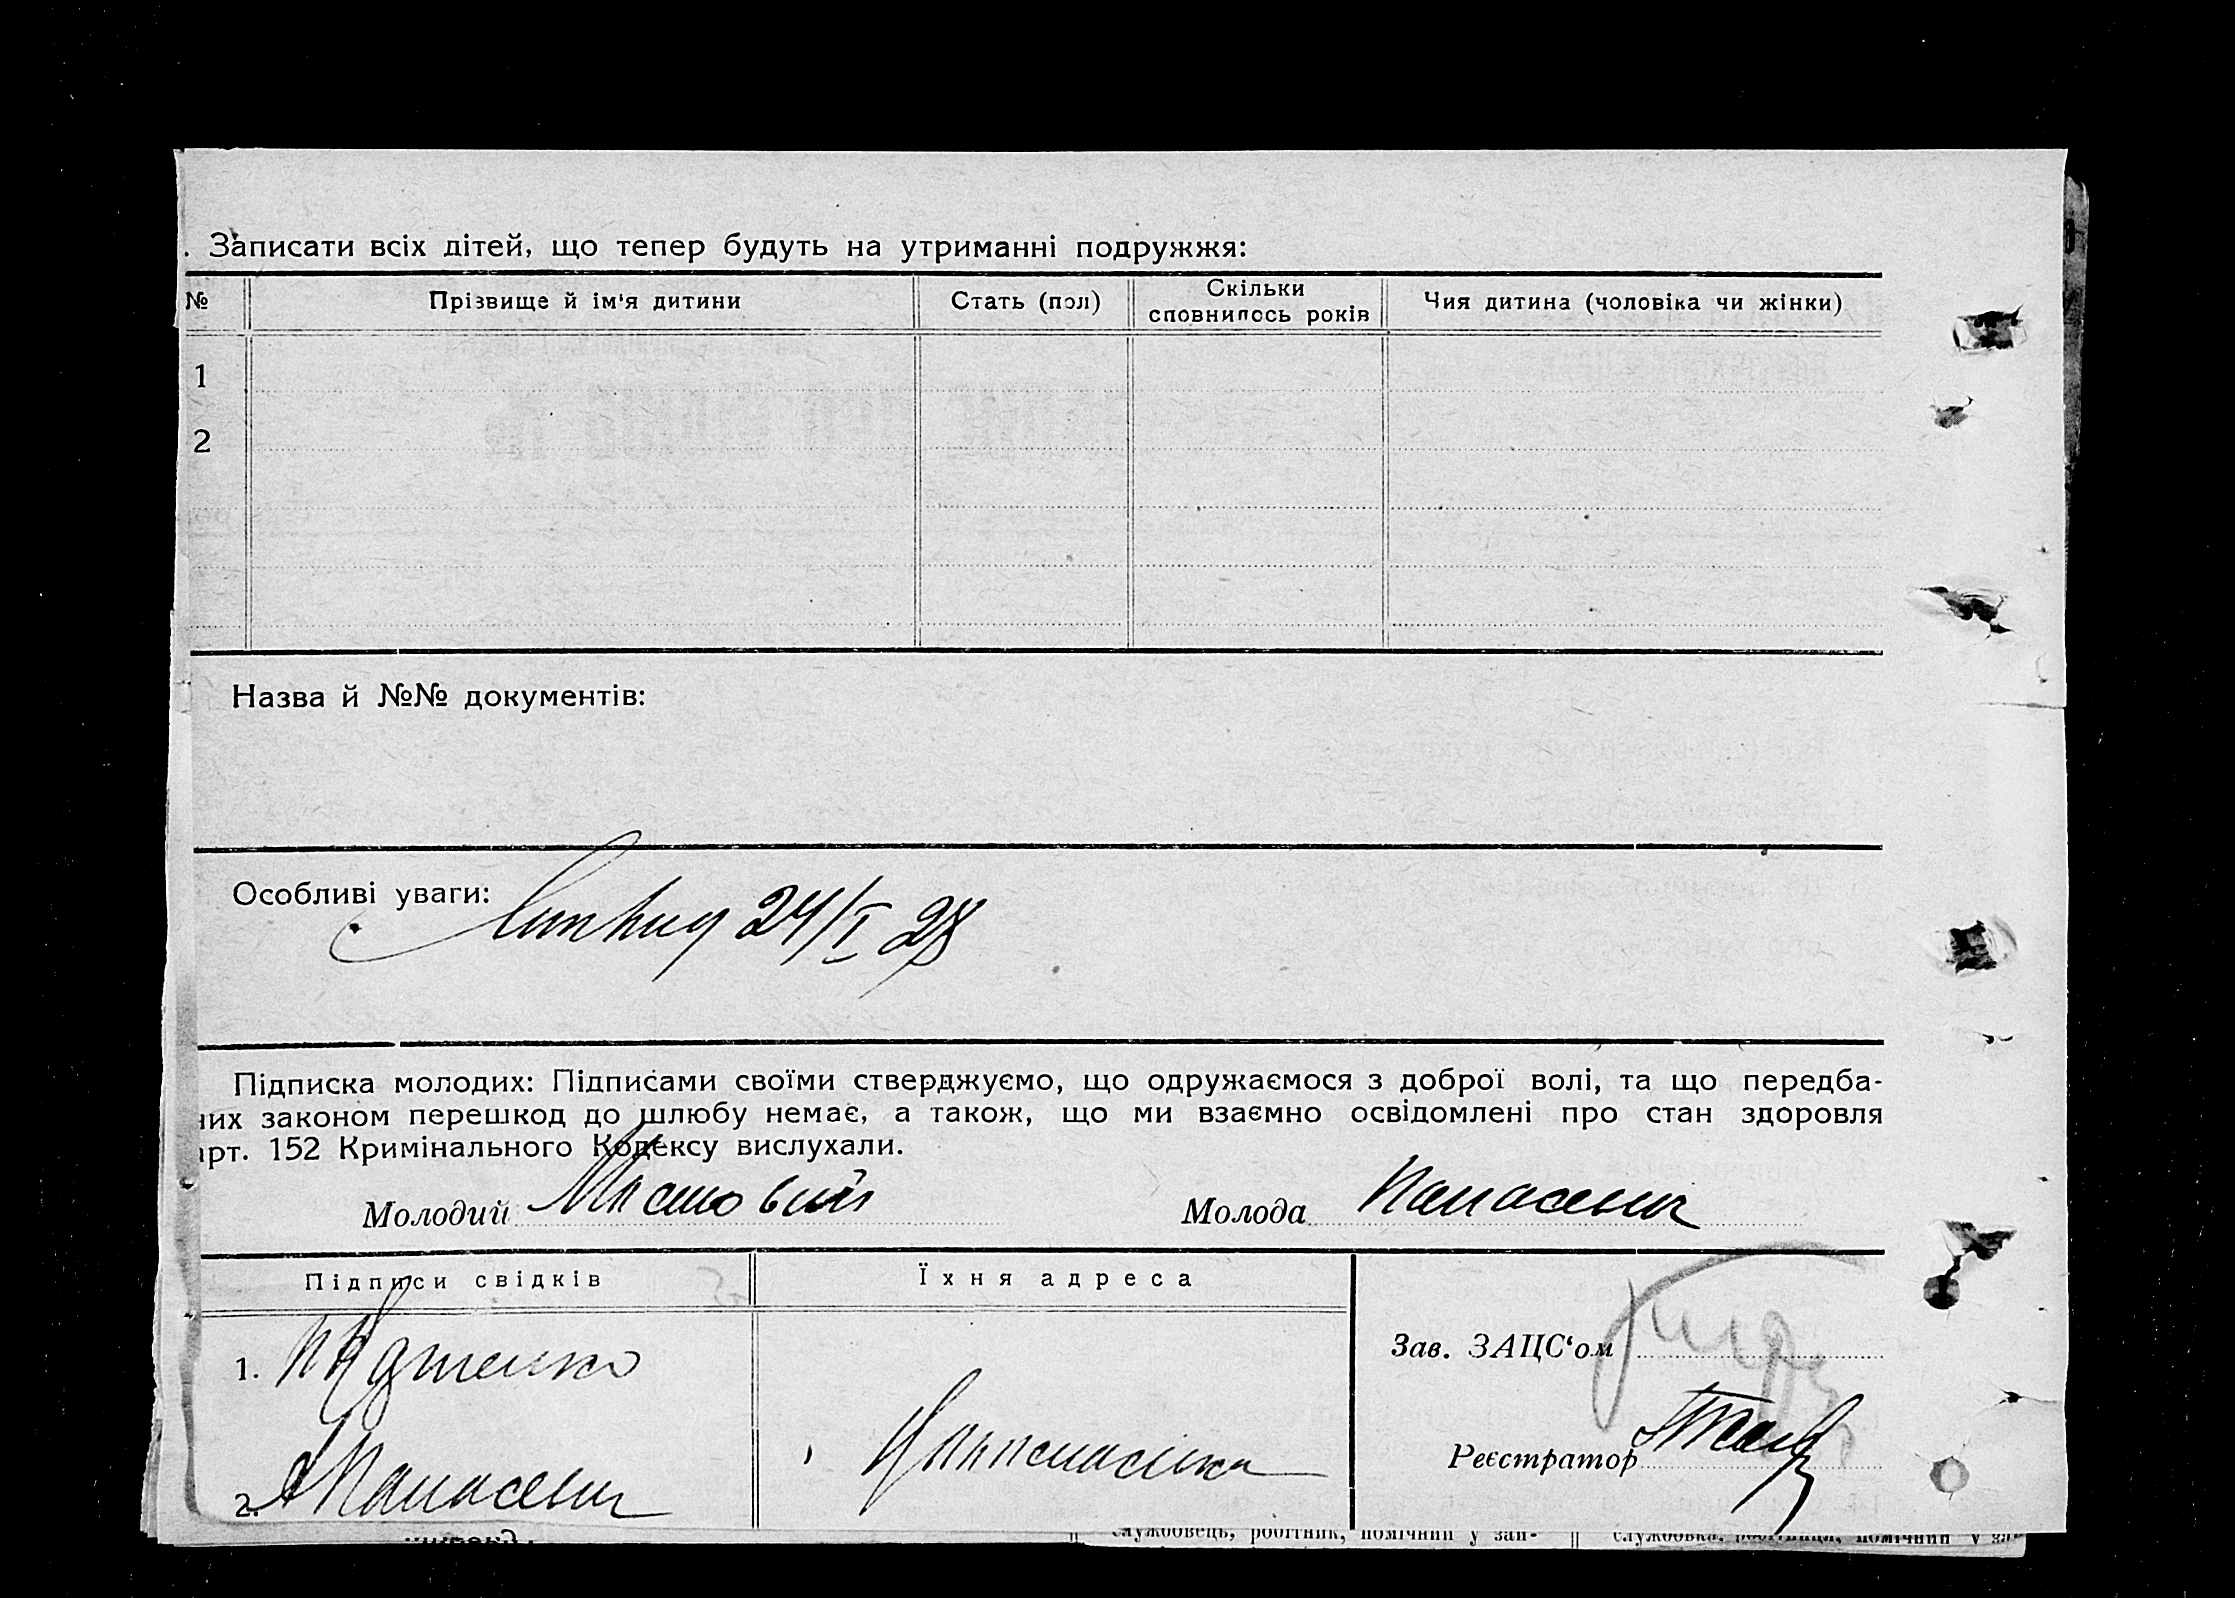 . Записати всіх дітей, що тепер будуть на утриманні подружжя:
№ Прізвище й ім'я дитини Стать (пол) Скільки сповнилось років Чия дитина (чоловіка чи жінки)
1
2
Назва й №№ документів:
Особливі уваги: 24/I 28
Підписка молодих: Підписами своїми стверджуємо, що одружаємося з доброї волі, та що передба-
них законом перешкод до шлюбу немає, а також, що ми взаємно освідомлені про стан здоровля
арт. 152 Кримінального Кодексу вислухали.
Молодий Молода Панасевич
Підписи свідків Їхня адреса
Зав. ЗАЦС‘ом
1.
Реєстратор
2. Панасевич
службовець, робітник, помічний у зан- службовка, робітниця, помічний у за